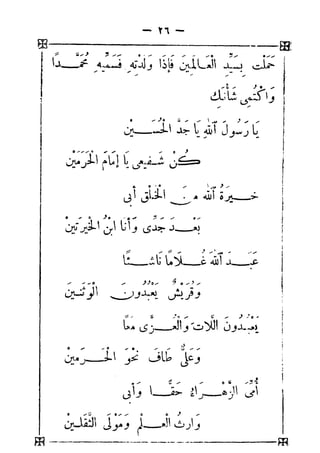 — ٢٦ —
حَمَلْتِ بِسَيِّدِ الْعَالَمِينَ فَإِذَا وَلَدْتِهِ فَسَمِّيهِ مُحَمَّدًا
وَاكْتُمِى شَأْنَكِ
يَا رَسُولَ اللهِ يَا جَدَّ الْحُسَيْنْ
كُنْ شَفِيعِى يَا إِمَامَ الْحَرَمَيْنْ
خِيرَةُ اللهِ مِنَ الْخَلْقِ أَبِى
بَعْدَ جَدِّى وَأَنَا ابْنُ الْخِيرَتَيْنْ
عَبَدَ اللهَ غُلَامًا نَاشِئًا
وَقُرَيْشٌ يَعْبُدُونَ الْوَثَنَيْنْ
يَعْبُدُونَ اللَّاتَ وَالْعُزَّى مَعًا
وَعَلِىٌّ طَافَ نَحْوَ الْحَرَمَيْنْ
أُمِّىَ الزَّهْرَاءُ حَقًّا وَأَبِى
وَارِثُ الْعِلْمِ وَمَوْلَى الثَّقَلَيْنْ